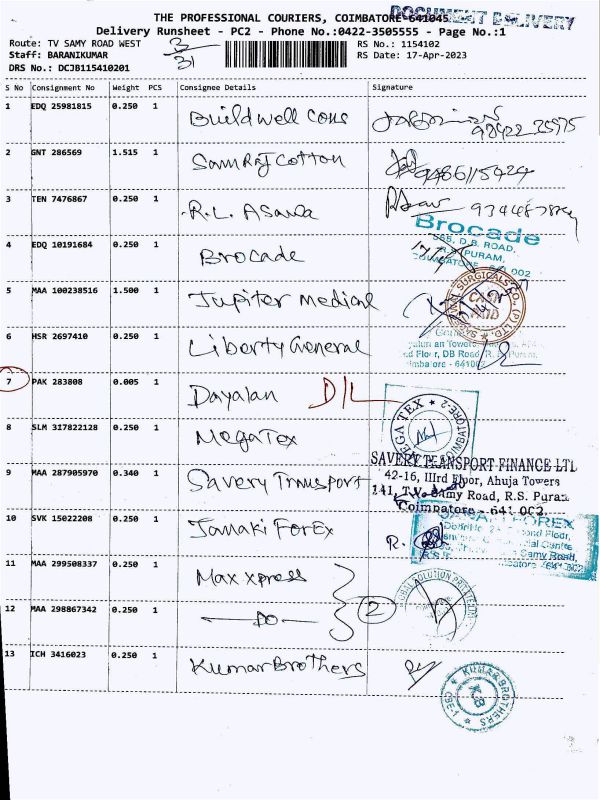 THE PROFESSIONAL COURIERS, COIMBATORE-641045
DOCUMENT DELIVERY
Delivery Runsheet - PC2 - Phone No.:0422-3505555 - Page No.:1
Route: TV SAMY ROAD WEST
3/31
RS No.: 1154102
Staff: BARANIKUMAR
RS Date: 17-Apr-2023
DRS No.: DCJB115410201
S No Consignment No Weight PCS Consignee Details Signature
1 EDQ 25981815 0.250 1 Buildwell Cons
2 GNT 286569 1.515 1 Samraj Cotton 9486115424
3 TEN 7476867 0.250 1 R.L. Asawa
Brocade
D.B. ROAD,
PURAM,
4 EDQ 10191684 0.250 1 Brocade
COIMBATORE
002
5 MAA 100238516 1.500 1 Jupiter Medical
SURGICALS CO. (P) LTD.
6 HSR 2697410 0.250 1 Liberty General
Floor, DB Road, R.S. Puram,
7 PAK 283808 0.005 1 Dayalan D/L
8 SLM 317822128 0.250 1 MegaTex
MEGA TEX ★ COIMBATORE-2
SAVERY TRANSPORT FINANCE LTD
9 MAA 287905970 0.340 1 Savery Transport
42-16, IIIrd Floor, Ahuja Towers
141, T.V. Samy Road, R.S. Puram
Coimbatore - 641 002.
10 SVK 15022208 0.250 1 Janaki Forex R.
FOREX
Floor,
Centre
Samy Road,
11 MAA 299508337 0.250 1 Max xpress
SOLUTION PRIVATE
12 MAA 298867342 0.250 1 —Do— 2
13 ICH 3416023 0.250 1 Kumar Brothers
★ KUMAR BROTHERS ★ CBE-1
KB